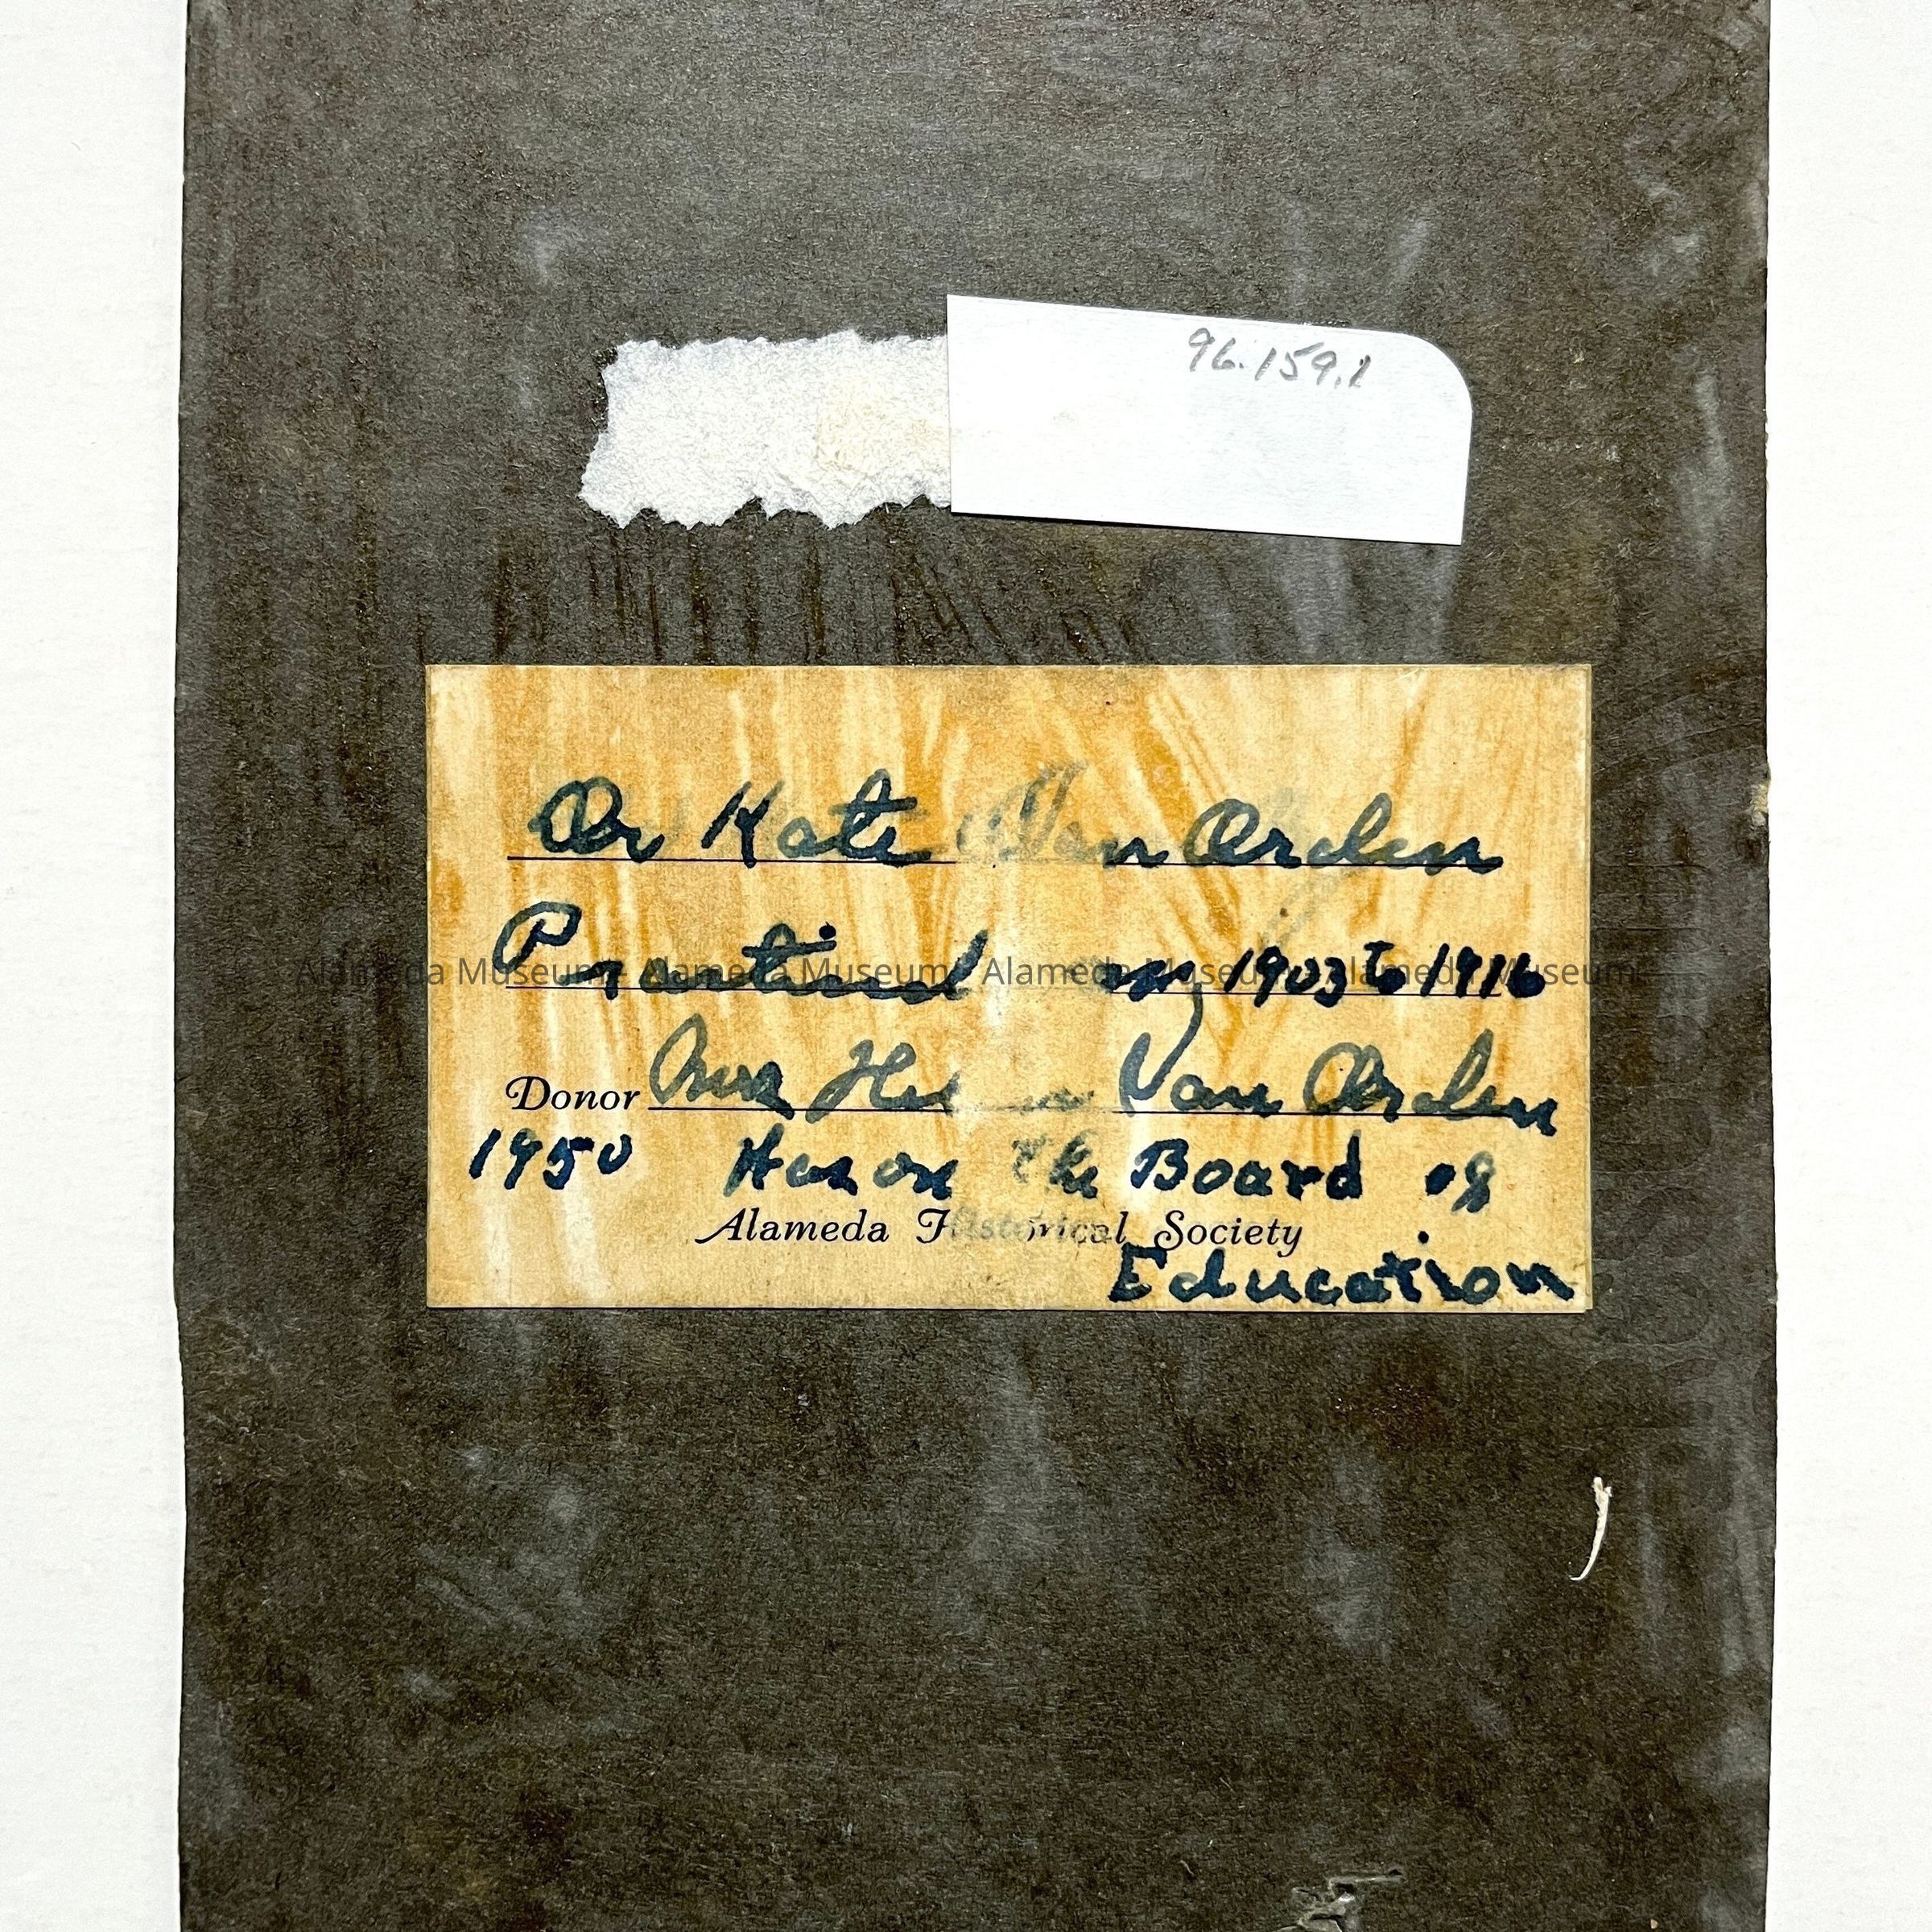 96.159.1
Dr Kate Van Orden
1903 to 1916
Donor Van Orden
1950 The Board of
Alameda Historical Society
Education
Alameda Museum Alameda Museum Alameda Museum Alameda Museum